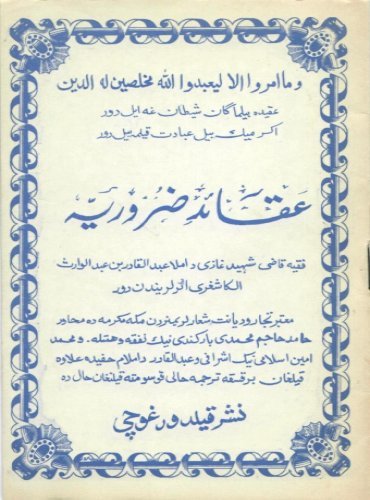 وما امروا الا ليعبدوا الله مخلصين له الدين
عقيده بيلماگان شيطان غه ايل دور
اكر مينك ييل عبادت قيلمه ييل دور
عقائد ضروريه
فقيه قاضى شهيد غازى داملا عبد القادر بن عبد الوارث
الكاشغرى اثرلريندن دور
معتبر تجار و ديانت شعارلريمزدن مكه مكرمه ده مجاور
حامد حاجيم محمدى ياركندى نينك نفقه و همتله . و محمد
امين اسلامى نينك اشرافى و عبد القادر داملام حفيده علاوه
قيلغان برقسقه ترجمه حالى قوسومقه قيلغان حال ده
نشر قيلدورغوچى